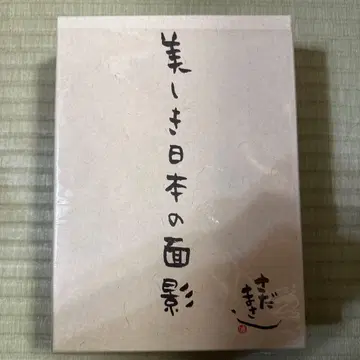 美しき日本の面影
さだ
まさし